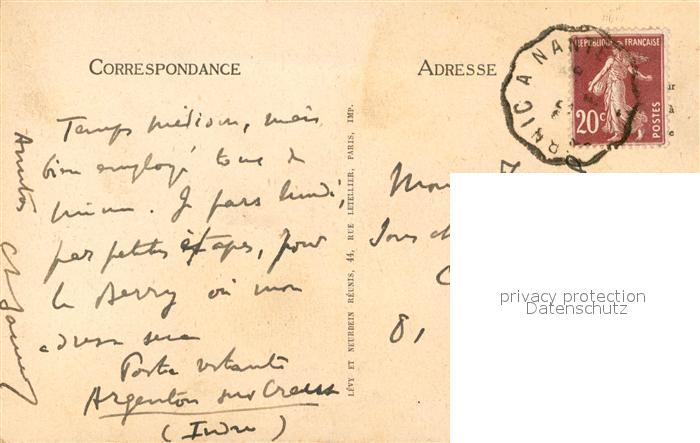 CORRESPONDANCE
ADRESSE
REPUBLIQUE FRANÇAISE
20c
POSTES
PORNIC A NANTES
Temps médiocre, mais
bien employé tout de
même. Je pars lundi,
par petites étapes, pour
le Berry où mon
adresse sera
Poste restante
Argenton sur Creuse
(Indre)
Amitiés
LÉVY ET NEURDEIN RÉUNIS, 44, RUE LETELLIER, PARIS, IMP.
Mon
Sous
81
privacy protection
Datenschutz